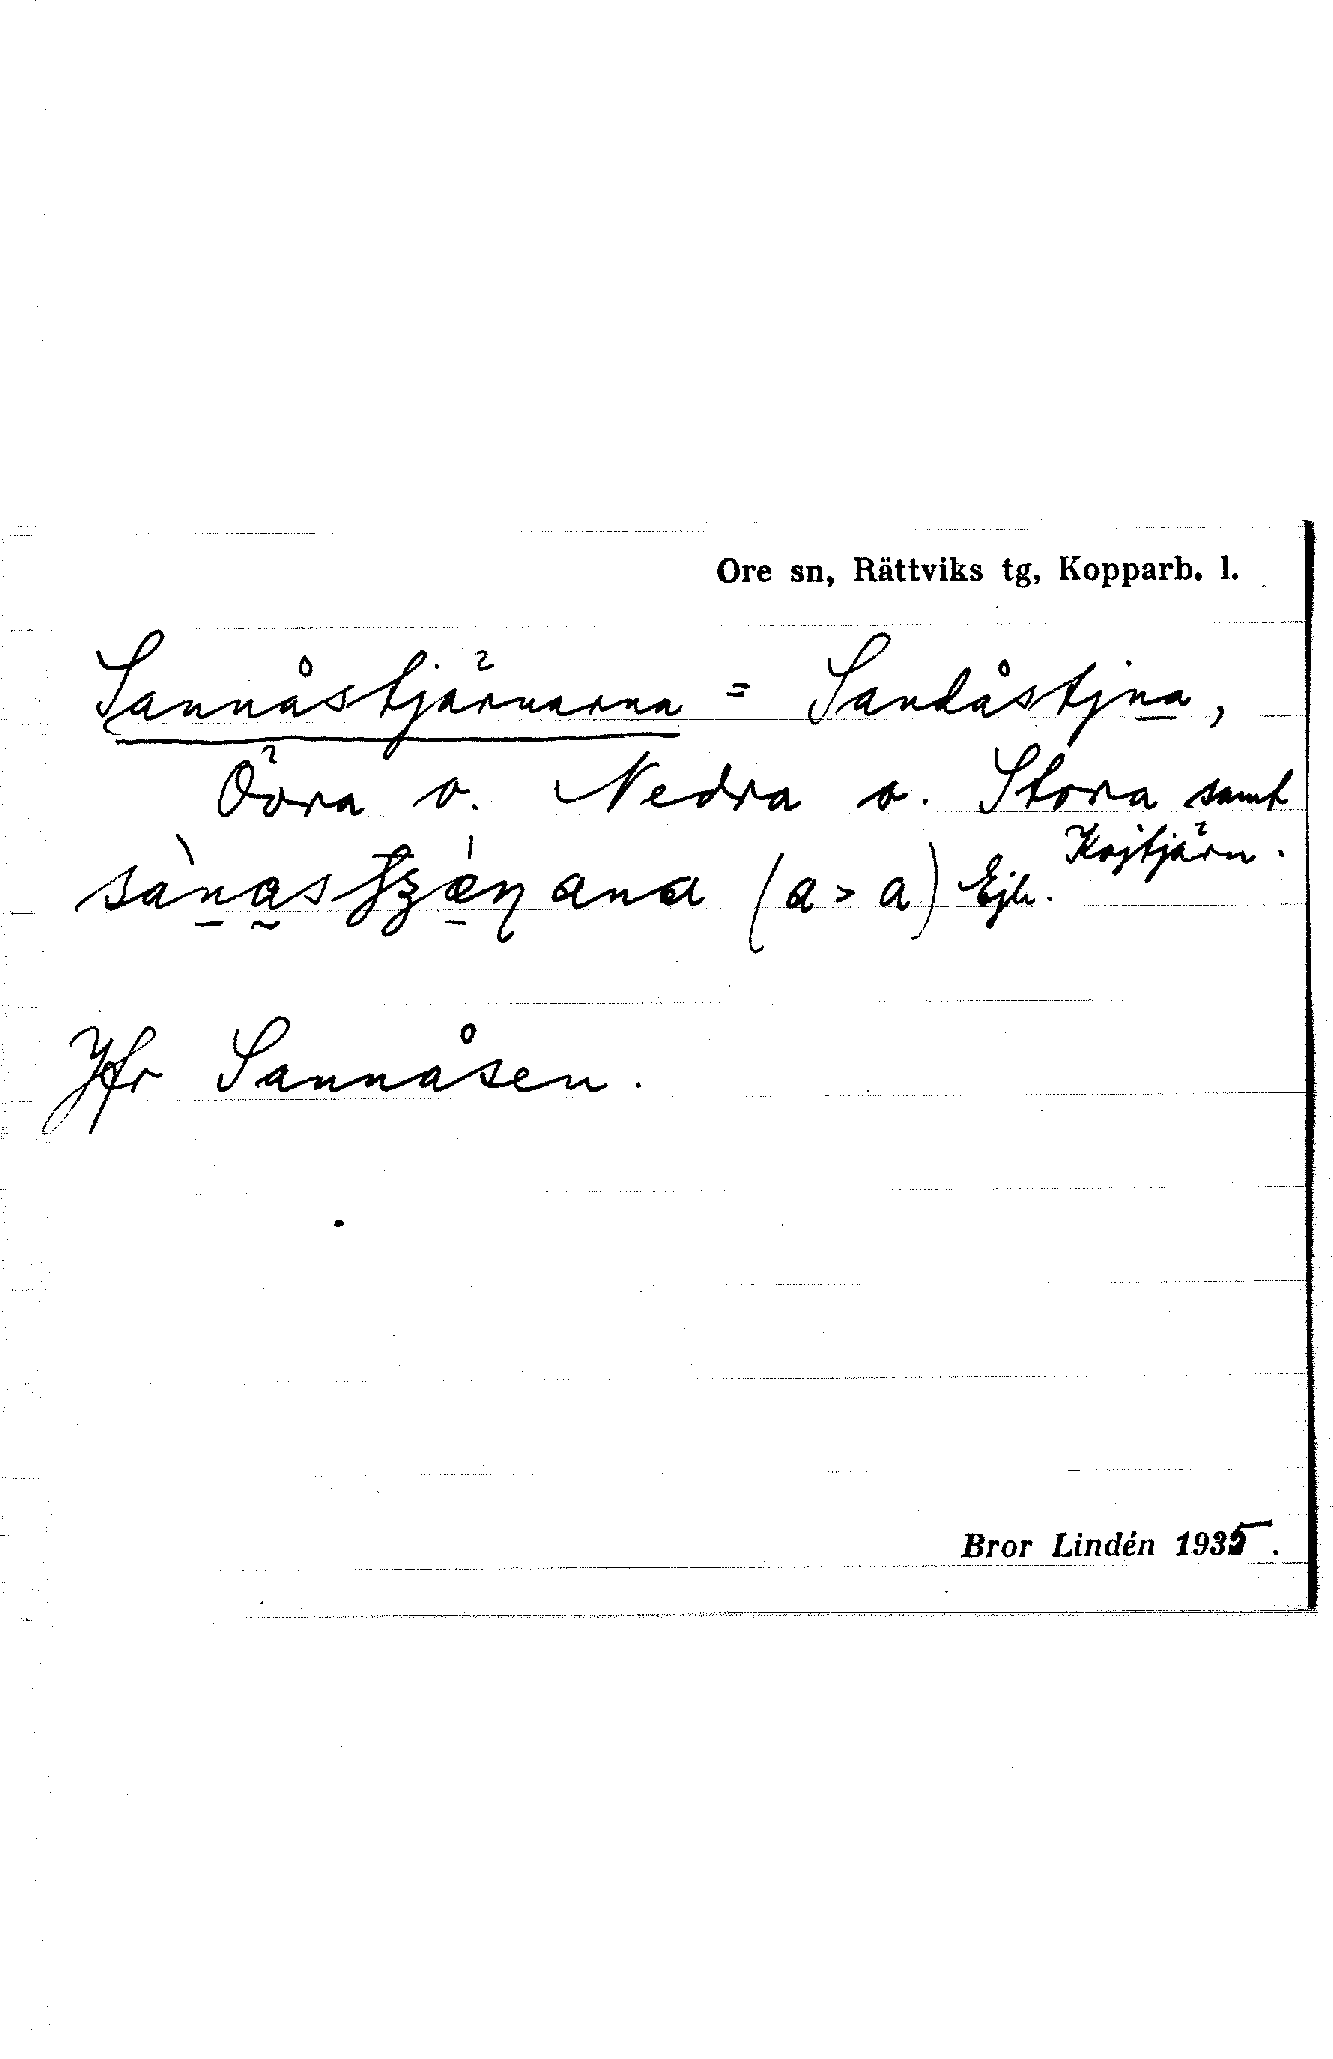 Ore sn, Rättviks tg, Kopparb. l.
Sannåstjärnarna = Sandåstjna,
Övra o. Nedra o. Stora samt
Kojtjärn.
(a > a) Ejh.
Jfr Sannåsen.
Bror Lindén 1935.